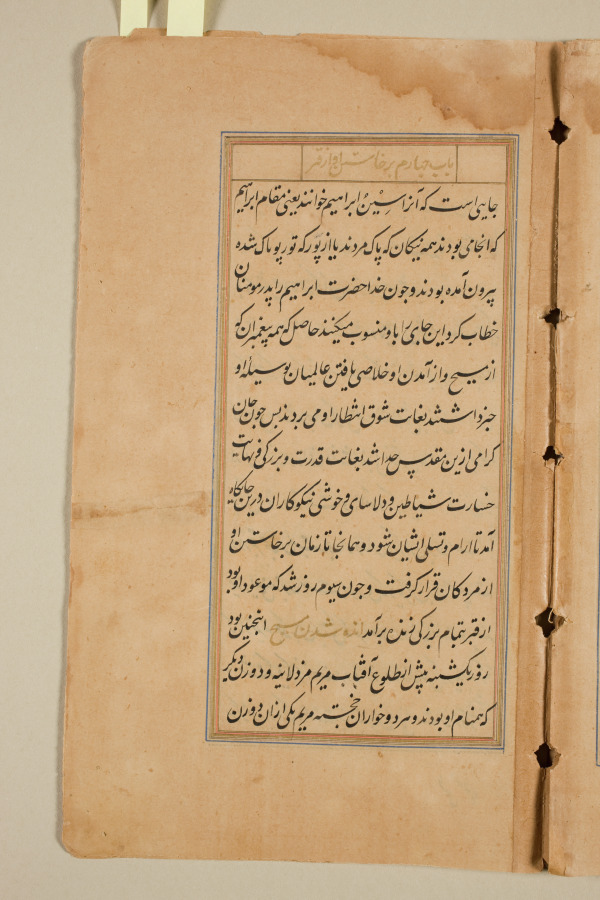 باب چهارم برخاستن او از قبر
جایی است که آنرا سِیْنُ ابراهیم خوانند یعنی مقام ابراهیم
که انجا می بودند همه نیکان که پاک مردند یا از پورکه تور پو پاک شده
بیرون آمده بودند و چون خدا حضرت ابراهیم را پدر مومنان
خطاب کرد این جای را باو منسوب میکنند حاصل که همه پیغمبران که
از مسیح و از آمدن او خلاصی یافتن عالمیان بوسیلهٔ او
خبر داشتند بغایت شوق انتظار او می بردند پس چون جان
گرامی ازین مقدس جدا شد بغایت قدرت و بزرگی و نهایت
خسارت شیاطین و دلاسای و خوشی نیکوکاران درین جایگاه
آمد تا ارام و تسلی ایشان شود و همانجا تا زمان برخاستن او
از مردکان قرار کرفت و چون سیوم روز شد که موعود او بود
از قبر بتمام بزرکی زنده برآمد زنده شدن مسیح اینچنین بود
روز یکشبنه پیش از طلوع آفتاب مریم مزدلانیه و دو زن دیگر
که همنام او بودند و هر دو خواران خجسته مریم یکی ازان دو زن